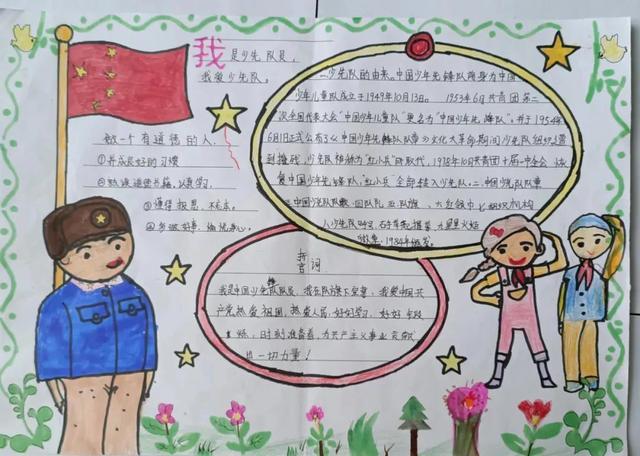 我是少先队员,
我爱少先队。
做一个有道德的人.
①养成良好的习惯
②认真学习.
③懂得
④多做好事.
一、少先队的由来、中国少年先锋队前身为中国
少年儿童队成立于1949年10月13日。 1953年6月共青团第二
次全国代表大会"中国少年儿童队"更名为"中国少年先锋队",并于1954年
6月1日正式公布了《中国少年先锋队队章》文化大革命期间少先队组织遭
到摧残,少先队被称为"红小兵"所取代,1978年10月共青团十届一中全会恢
复中国少年先锋队,"红小兵"全部转入少先队。二、少先队队章
中国少先队队歌、四队礼、五队旗、六红领巾七组织机构
入少先队呼号、
1984年颁发。
誓词
我是中国少年先锋队队员,我在队旗下宣誓,我热爱中国共
产党,热爱祖国,热爱人民,好好学习,好好锻
炼,时刻准备着,为共产主义事业贡献
一切力量!